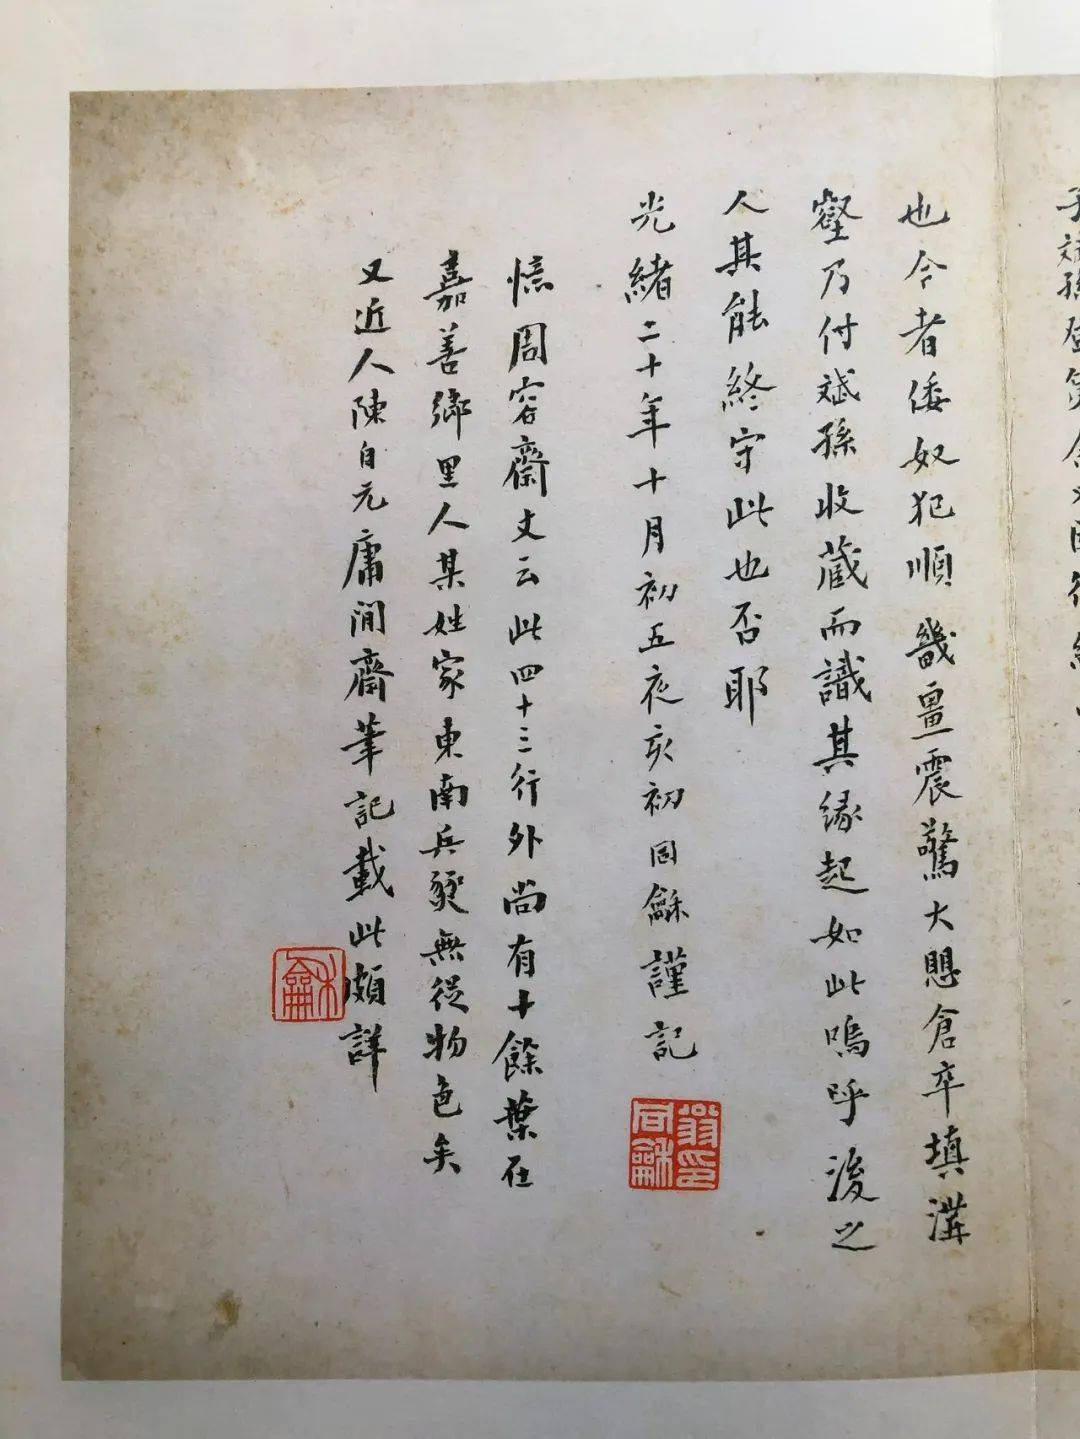 子斌孫
也今者倭奴犯順畿畺震驚大懼倉卒填溝
壑乃付斌孫收藏而識其緣起如此嗚呼後之
人其能終守此也否耶
光緒二十年十月初五夜亥初同龢謹記
翁同龢印
憶周容齋丈云此四十三行外尚有十餘葉在
嘉善鄉里人某姓家東南兵燹無從物色矣
又近人陳自元庸閒齋筆記載此頗詳
龢